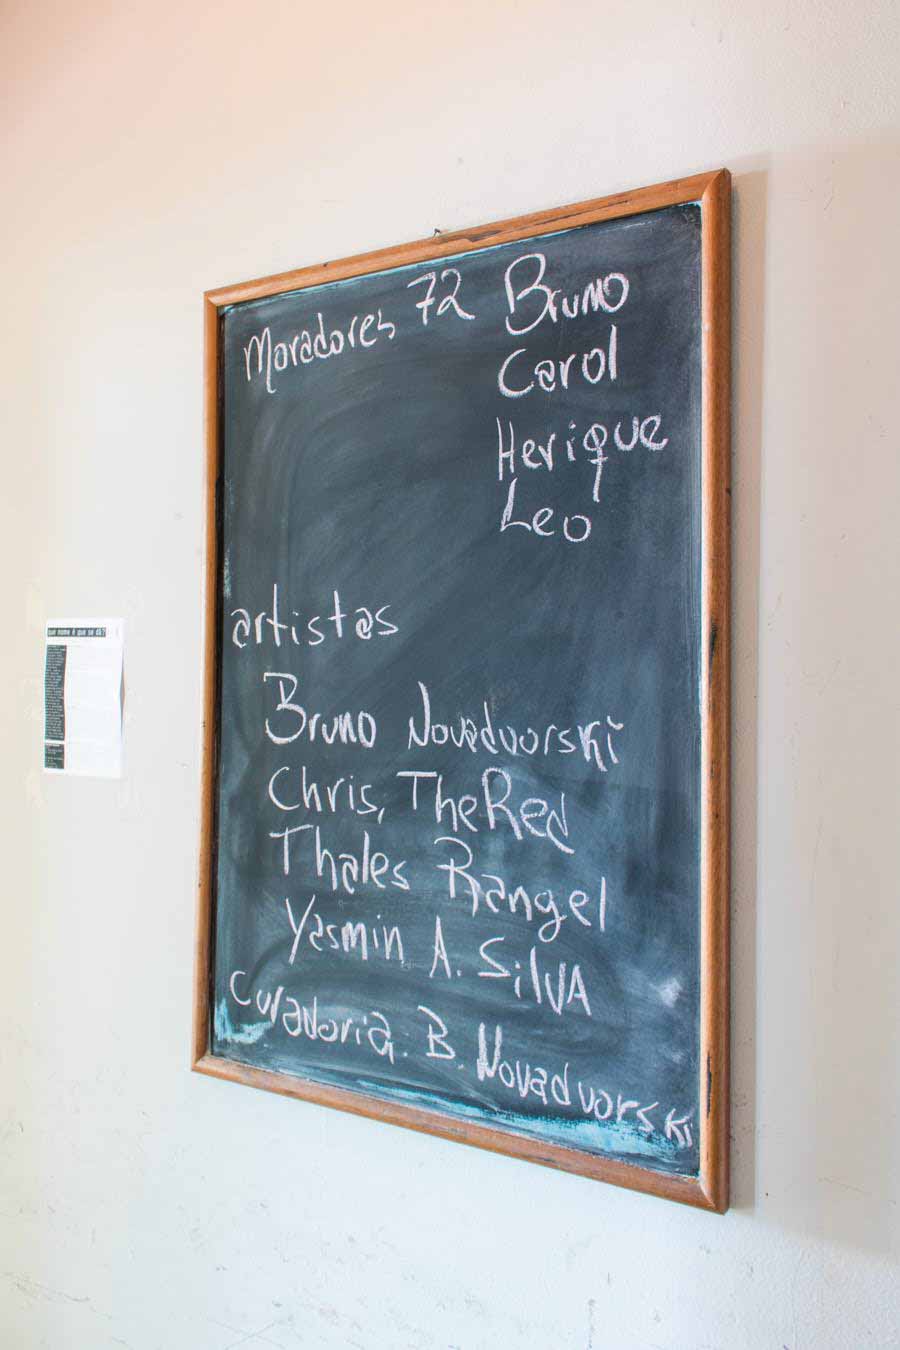 Moradores 72 Bruno
Carol
Herique
Leo
artistas
Bruno Novadvorski
Chris, TheRed
Thales Rangel
Yasmin A. SilVA
Curadoria: B. Novadvorski
que nome é que se dá?